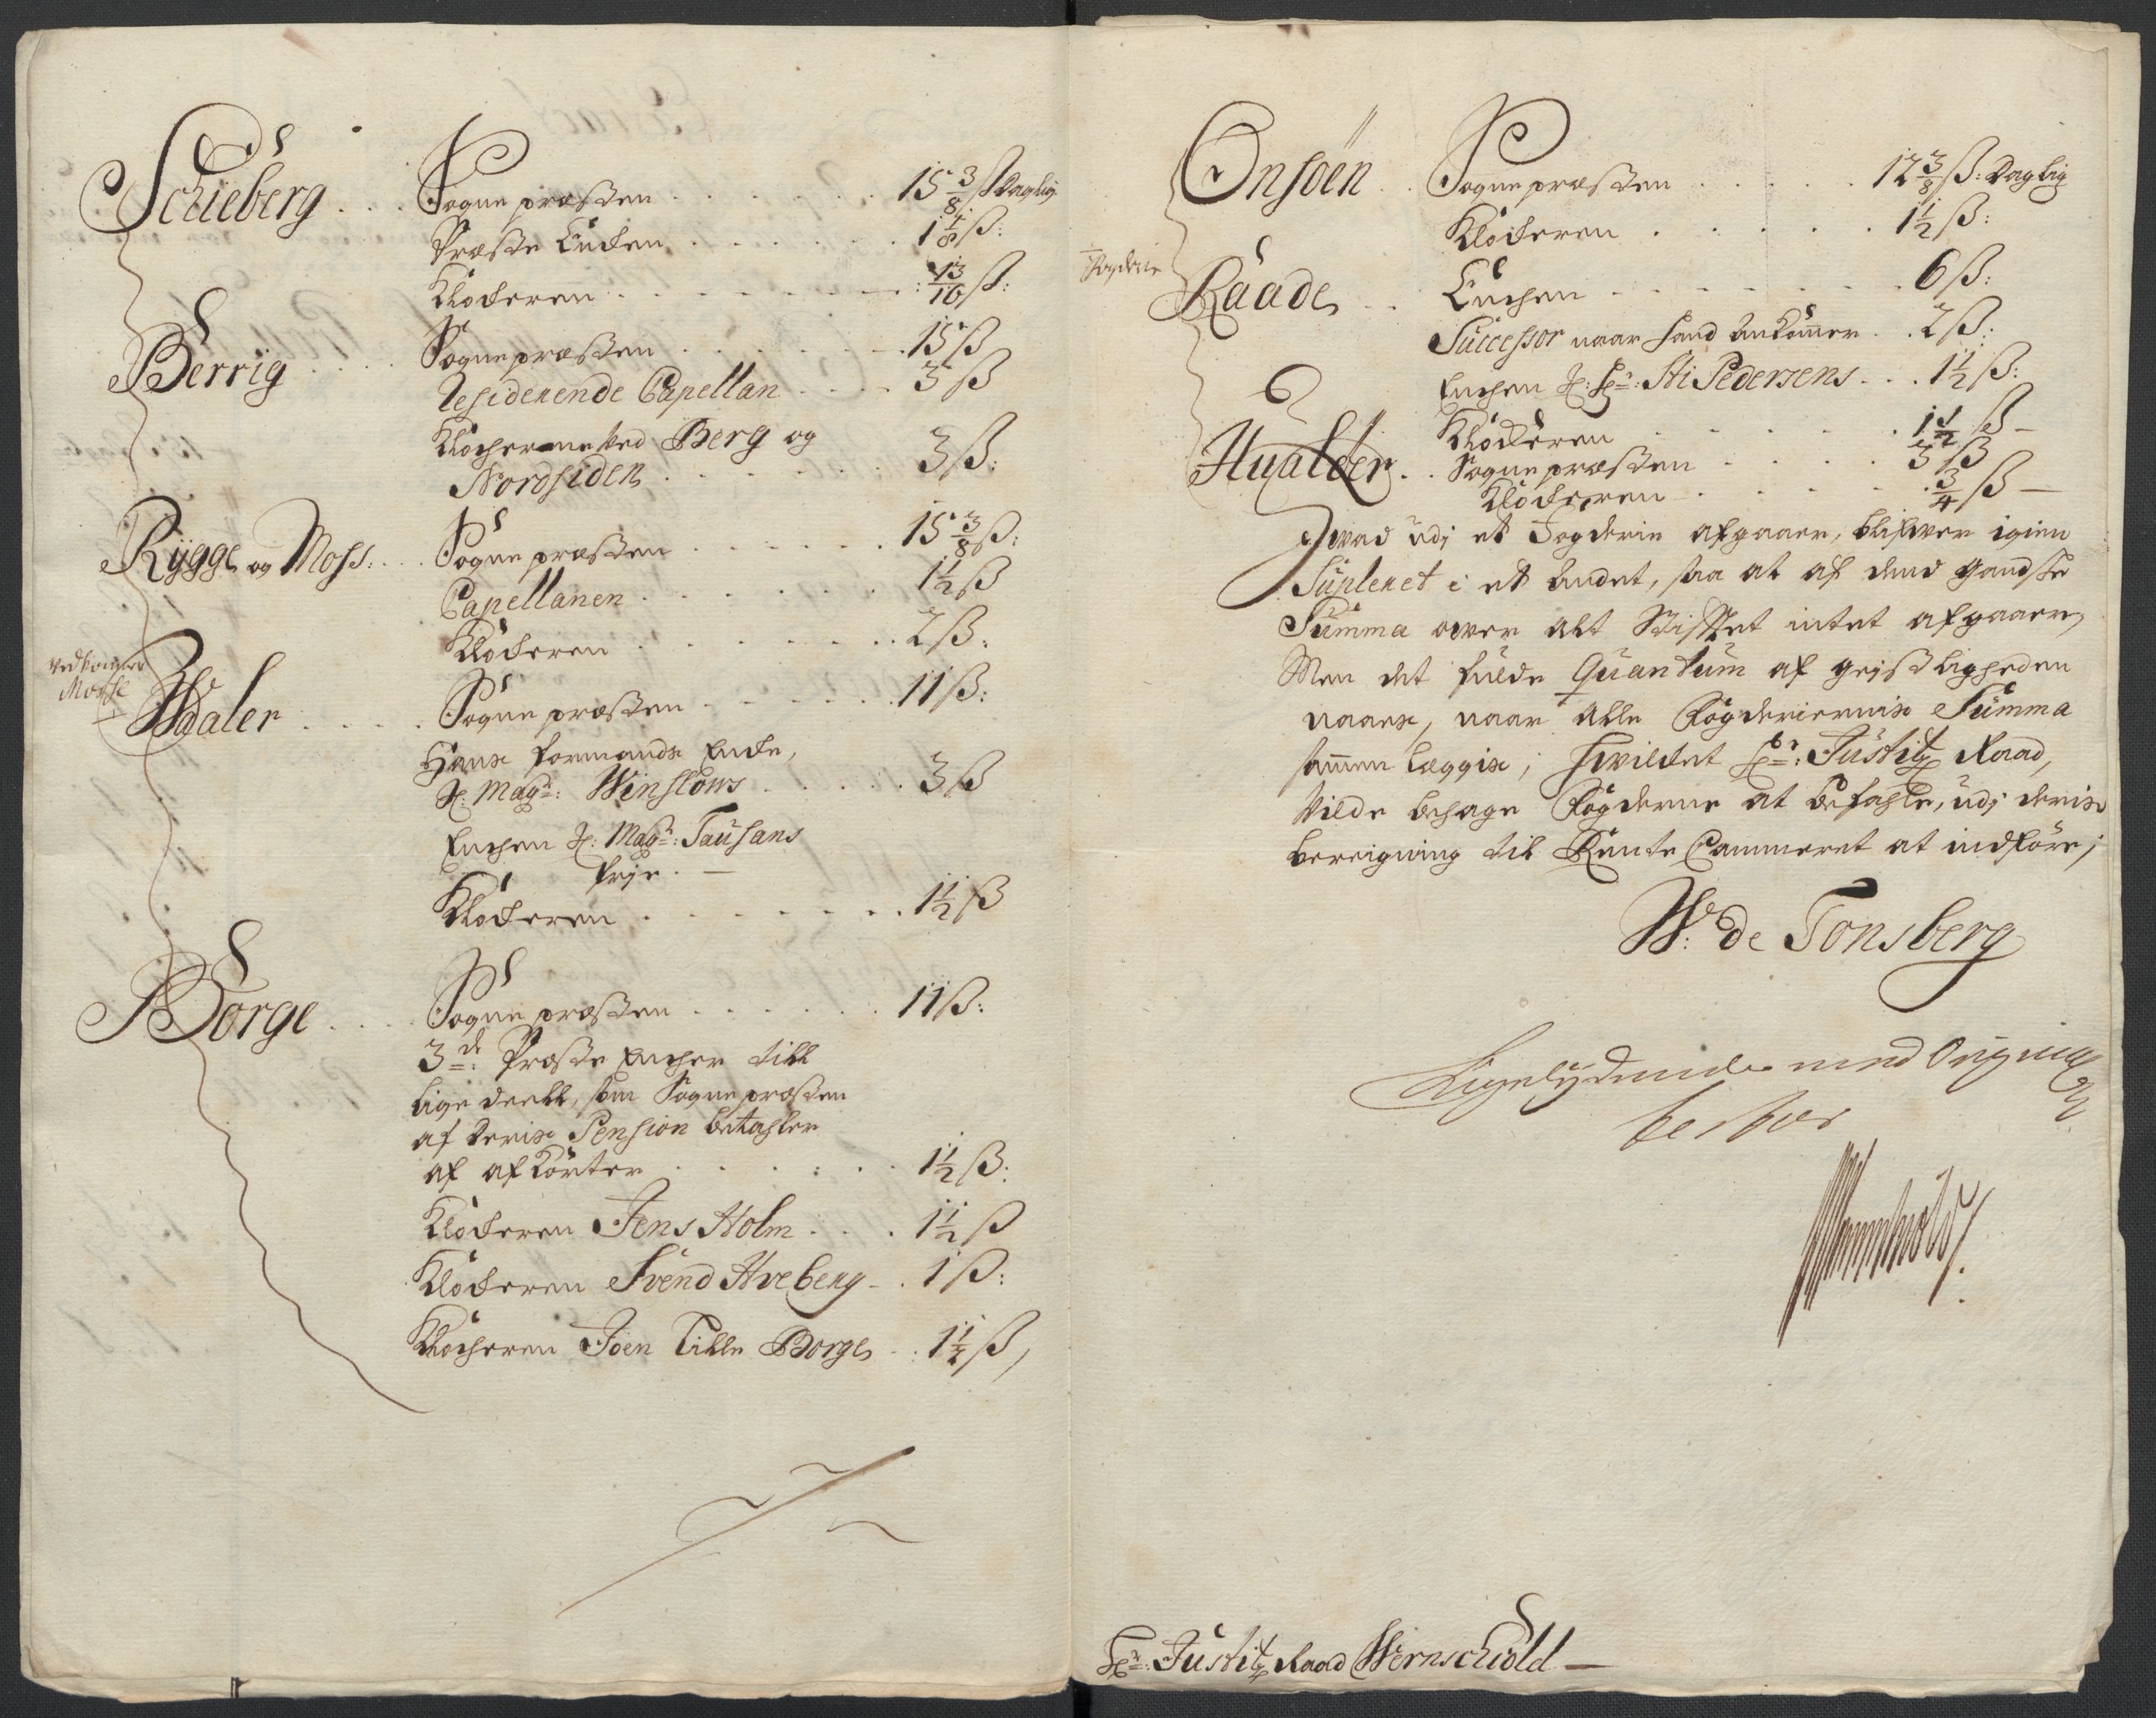 Schieberg . . . Sogne præsten . . . . . . 15 3/8 ß Daglig
Præste Encken . . . . . . 1 1/8 ß:
Klockeren . . . . . . 13/16 ß:
Berrig . . . . Sogne præsten . . . . . . 15 ß
Residerende Capellan . . . . 3 ß
Klocherne ved Berg og
Nordsiden . . . . . . 3 ß:
Rygge og Moss: . . . Sogne præsten . . . . . . 15 3/8 ß:
Capellanen . . . . . . 1 1/2 ß
Klockeren . . . . . . 2 ß:
Mosse
Waler . . . . Sogne præsten . . . . . . 11 ß:
Hans formands Encke,
H: Magr: Winslows . . . . . 3 ß
Enchen H: Magr: Tausans
frje. —
Klockeren . . . . . . 1 1/2 ß
Borge . . . . Sogne præsten . . . . . . 11 ß:
3de: Præste Encher till
lige deell, som Sogne præsten
af deris Pension betahler
af afkorter . . . . . . 1 1/2 ß:
Klockeren Jens Holm . . . . 1 1/2 ß
Klockeren Svend Hveberg . . 1 ß:
Klocheren Joen Tille Borge . . 1 1/2 ß,
Onsöen . . Sogne præsten . . . . . 12 3/8 ß: Daglig
Klockeren . . . . . 1 1/2 ß:
Raade . . Enchen . . . . . . 6 ß:
Successor naar hand ankommer . . 2 ß:
Enchen H: Hr: Sti Pedersens . . . 1 1/2 ß:
Klockeren . . . . . . 1 1/2 ß —
Hualöer . . Sogne præsten . . . . 3 ß
Klockeren . . . . . 3/4 ß —
Hvad udj et Fogderie afgaaer, blifwer igien
Supleret i et andet, saa at af dend gandske
Summa ower alt Stifftet intet afgaaer,
Men det fulde Quantum af geistligheden
naars, naar alle Fogderiernis Summa
sammen læggis; hvilcket Hr: Justitz Raad,
Vilde behage Fogderne at befahle, udj deris
bereigning til Rente Cammeret at indföre;
W: de Tonsberg
Ligelydende med Originalen
testor
Hr: Justitz Raad Wernschiöld —